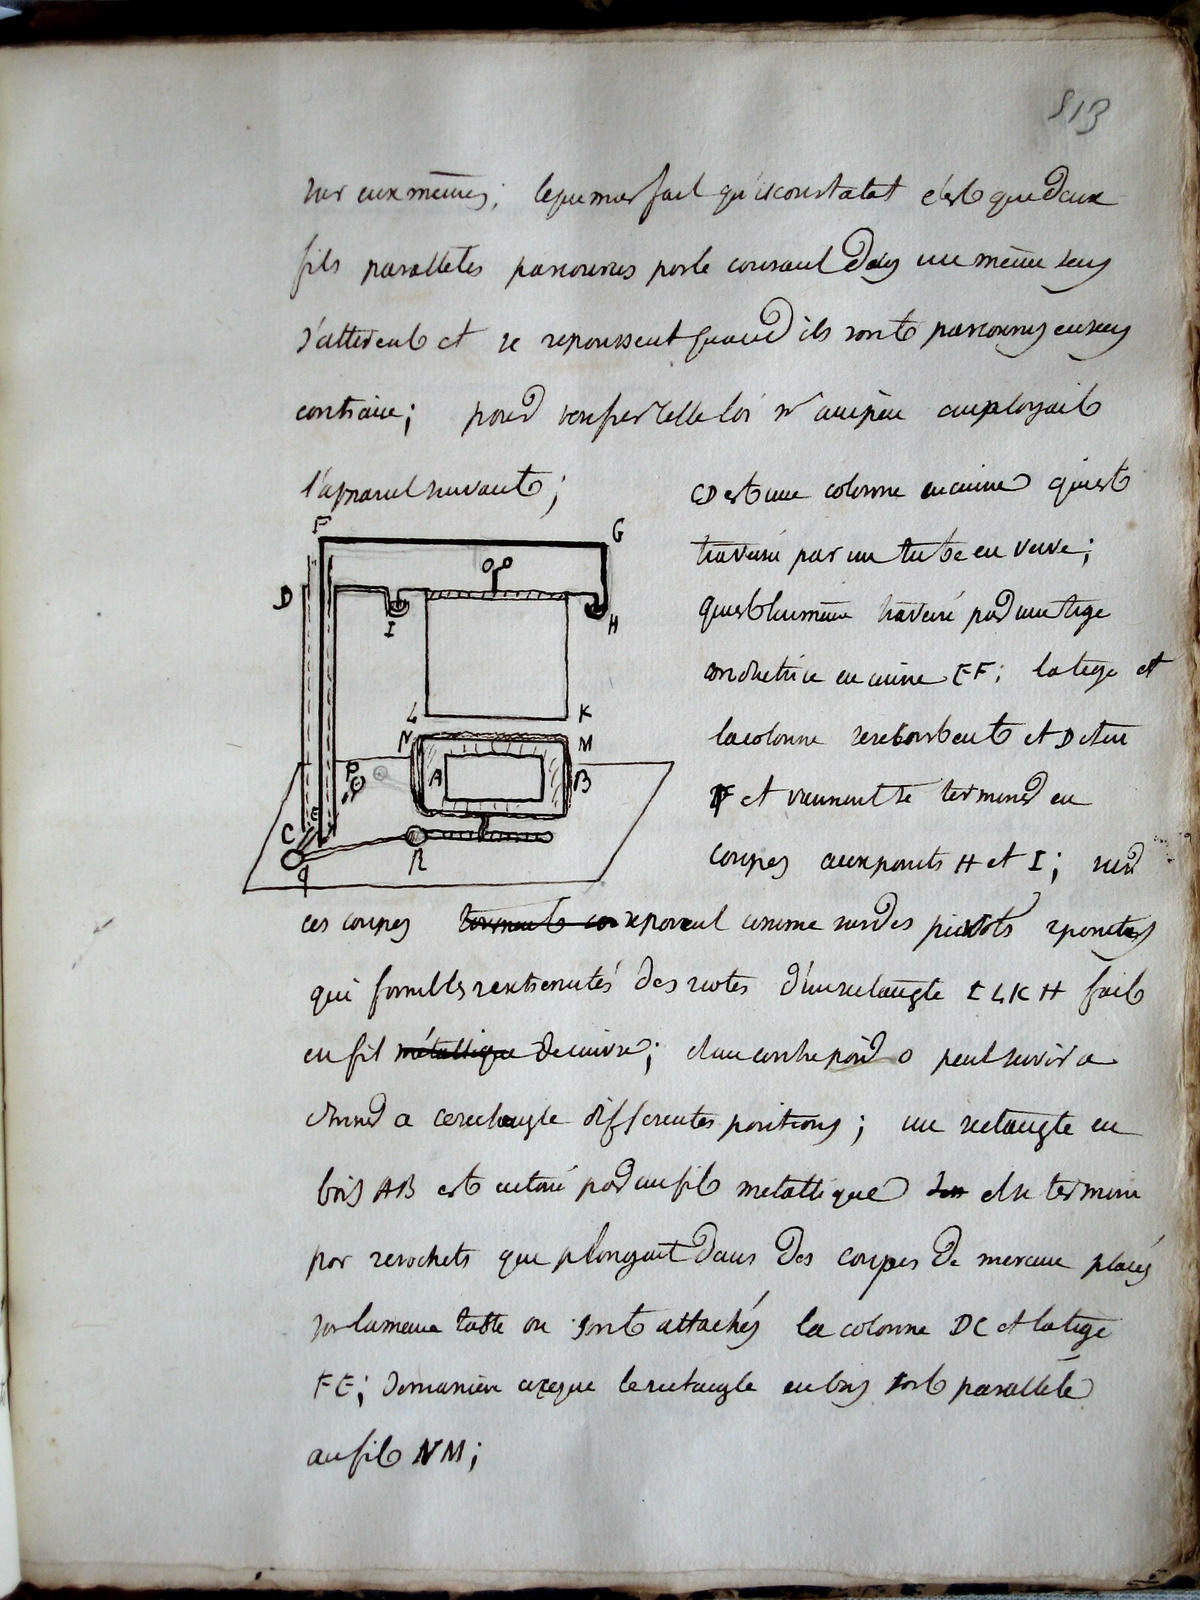 813
sur eux mêmes; le premier fait qu'il constatat c'est que deux
fils paralleles parcourus par le courant dans un même sens
s'attirent et se repoussent quand ils sont parcourus en sens
contraire; pour verifier cette loi mr ampère employait
l'appareil suivant;
CD est une colonne en cuivre qui est
traversé par un tube en verre;
qui est lui même traversé par une tige
conductrice en cuivre EF; la tige et
la colonne se recourbent et D et en
F et viennent se terminer en
coupes aux points H et I; sur
ces coupes reposent comme sur des pivots 2 pointes
qui forment les extremités des cotés d'un rectangle ILKH fait
en fil métallique de cuivre; et un contre poid O peut servir a
donner a ce rectangle differentes positions; un rectangle en
bois AB est entouré par un fil metallique et se termine
par crochets que plongent dans des coupes de mercure placés
sur la meme table ou sont attachés la colonne DC et la tige
FE; de maniere a ce que le rectangle en bois soit parallèle
au fil NM;
F G
D
I H
L K
N M
P A B
C E
Q R